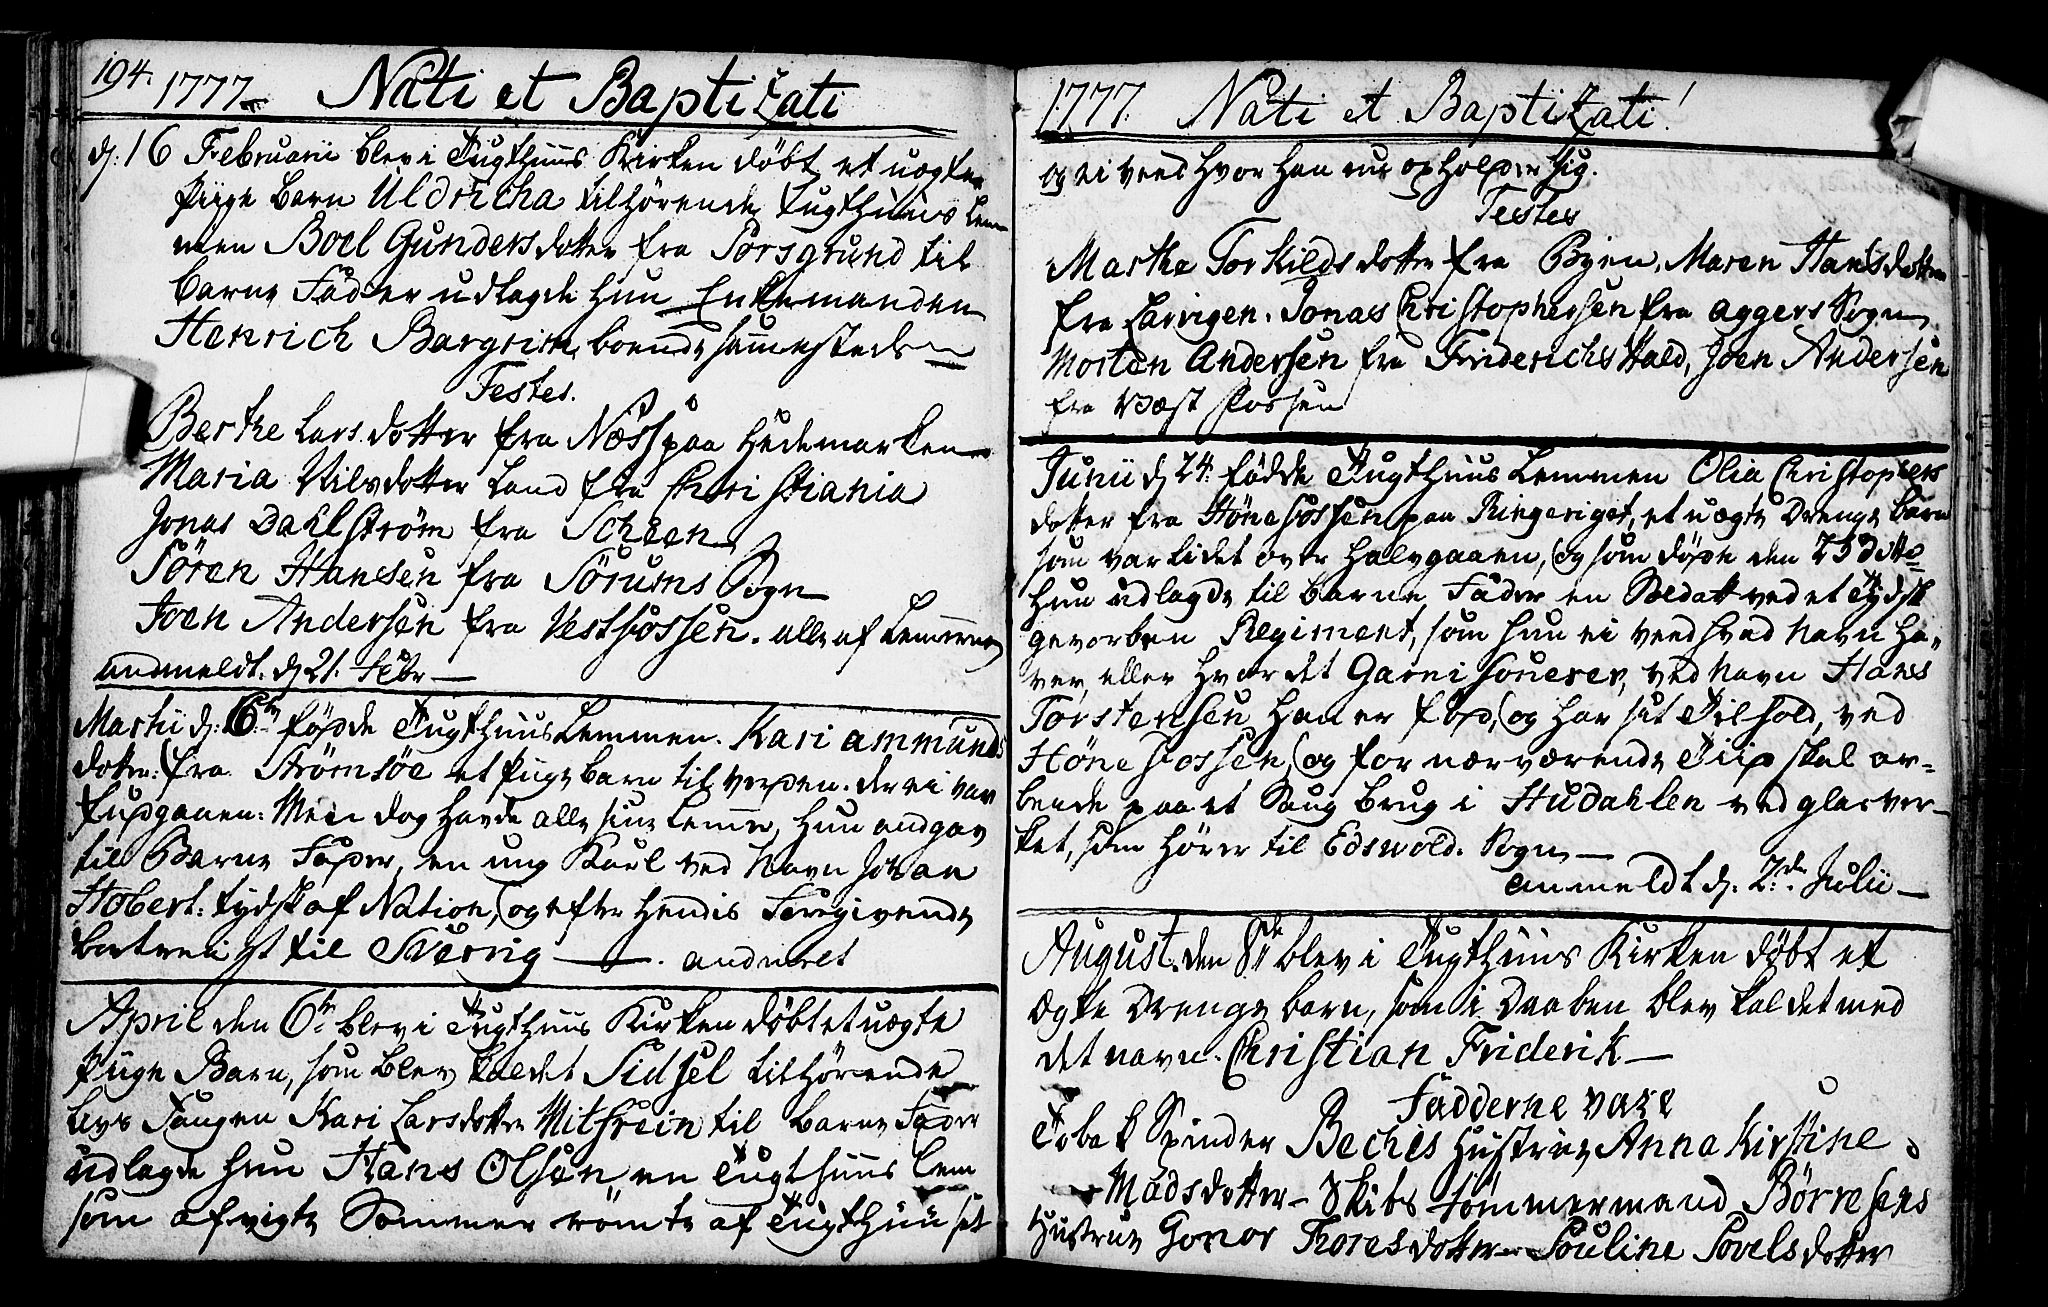 194. 1777. Nati et Baptizati
d: 16 Februarii blev i Tugthuus Kirken döbt et uægte
Piige barn Uldricha tilhørende Tugthuus Lem-
men Boel Gundersdotter fra Porsgrund til
barne Fader udlagde hun Enkemanden
Henrich Bargrim, boende sammesteds
Testes.
Berthe Lars dotter fra Næss paa Hedemarken
Maria Nilsdotter Land fra Christiania
Jonas Dahlström fra Scheen
Sören Hanssen fra Sörums Sogn
Joen Andersen fra Vestfossen. alle af Lemmerne
andmeldt. d 21. Febr
Martii d: 6te fødde Tugthuus Lemmen. Kari Ammunds
dotter: fra Strömsöe et Pige barn til verden. der ei var
fuldgaaen: Men dog havde alle sine Lemmer, hun andgav
til Barne Fader, en ung Karl ved Navn Johan
Hobert: tydsk af Nation, og efter hendis Foregivende
bortreigst til Sverrig. andmelt
April den 6te blev i Tugthuus Kirken döbt et uægte
Piige Barn, som blev kaldet Sidsel tilhørende
Livs Fangen Kari Larsdotter Mithrein til barne Fader
udlagde hun Hans Olsen, en Tugthuus Lem
som afvigte Sommer römte af Tugthuuset
1777. Nati et Baptizati!
og ei veed hvor han nu opholder sig.
Testes
Marthe Torkildsdotter fra Byen, Maren Hansdotter
fra Larvigen. Jonas Christophersen fra Aggers Sogn
Morten Andersen fra Friderichshald, Joen Andersen
fra Væst fossen
Junii d 24. fødde Tugthuus Lemmen Olia Christophers
dotter fra Hönefossen paa Ringeriget, et uægte Drenge barn
som var lidet over halvgaaen, og som døde den 25 dito
Hun udlagde til barne Fader en Soldatt ved et Tydsk
gevorben Regiment, som hun ei veed hvad Navn ha-
ver, eller hvor det Garnisonerer, ved Navn Hans
Torstensen han er fød, og har sit Tilhold, ved
Hönefossen, og for nærværende Tiid skal ar-
beide paa et Saug brug i Hudahlen ved glasver-
ket, som hører til Edswold. Sogn
anmeldt d: 2de Julii
August. den 8de blev i Tugthuus Kirken døbt et
Ægte Drenge barn, som i Daaben blev kaldet med
det navn. Christian Friderik
Fadderne vare
Tobak Spinder Bechis Hustrue Anna Kirstine
Madsdotter - Skibs tömmermand Börresens
Hustrue Gonor Thoresdotter - Pouline Povelsdotter